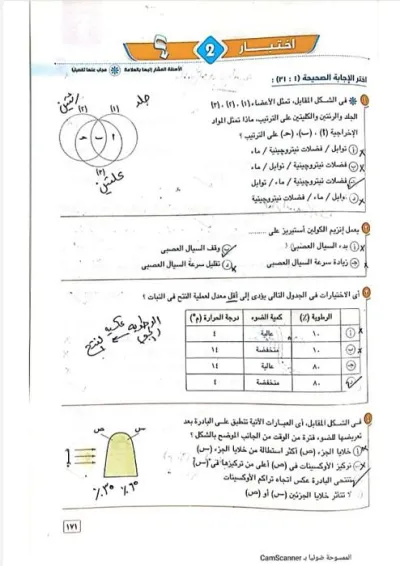 اختبار 2
الأسئلة المشار إليها بالعلامة مجاب عنها تفصيليًا
اختر الإجابة الصحيحة (١ : ٣١) :
١ فى الشكل المقابل، تمثل الأعضاء (١)، (٢)، (٣)
الجلد والرئتين والكليتين على الترتيب، ماذا تمثل المواد
الإخراجية (أ)، (ب)، (حـ) على الترتيب ؟
أ توابل / فضلات نيتروچينية / ماء
ب فضلات نيتروچينية / توابل / ماء
ج فضلات نيتروچينية / ماء / توابل
د توابل / ماء / فضلات نيتروچينية
جلد
(١)
(٢)
(٣)
أ
حـ
٢ يعمل إنزيم الكولين أستيريز على ..........
أ بدء السيال العصبى
ب وقف السيال العصبى
ج زيادة سرعة السيال العصبى
د تقليل سرعة السيال العصبى
٣ أى الاختيارات فى الجدول التالى يؤدى إلى أقل معدل لعملية النتح فى النبات ؟
الرطوبة (٪) كمية الضوء درجة الحرارة (م°)
أ ١٠ عالية ٤
ب ١٠ منخفضة ١٤
ج ٨٠ عالية ١٤
د ٨٠ منخفضة ٤
الرطوبة عكسية
٤ فى الشكل المقابل، أى العبارات الآتية تنطبق على البادرة بعد
تعريضها للضوء فترة من الوقت من الجانب الموضح بالشكل ؟
أ خلايا الجزء (ص) أكثر استطالة من خلايا الجزء (س)
ب تركيز الأوكسينات فى (ص) أعلى من تركيزها فى (س)
ج تنتحى البادرة عكس اتجاه تراكم الأوكسينات
د لا تتأثر خلايا الجزئين (س) أو (ص)
ص
س
١٧١
الممسوحة ضوئيا بـ CamScanner